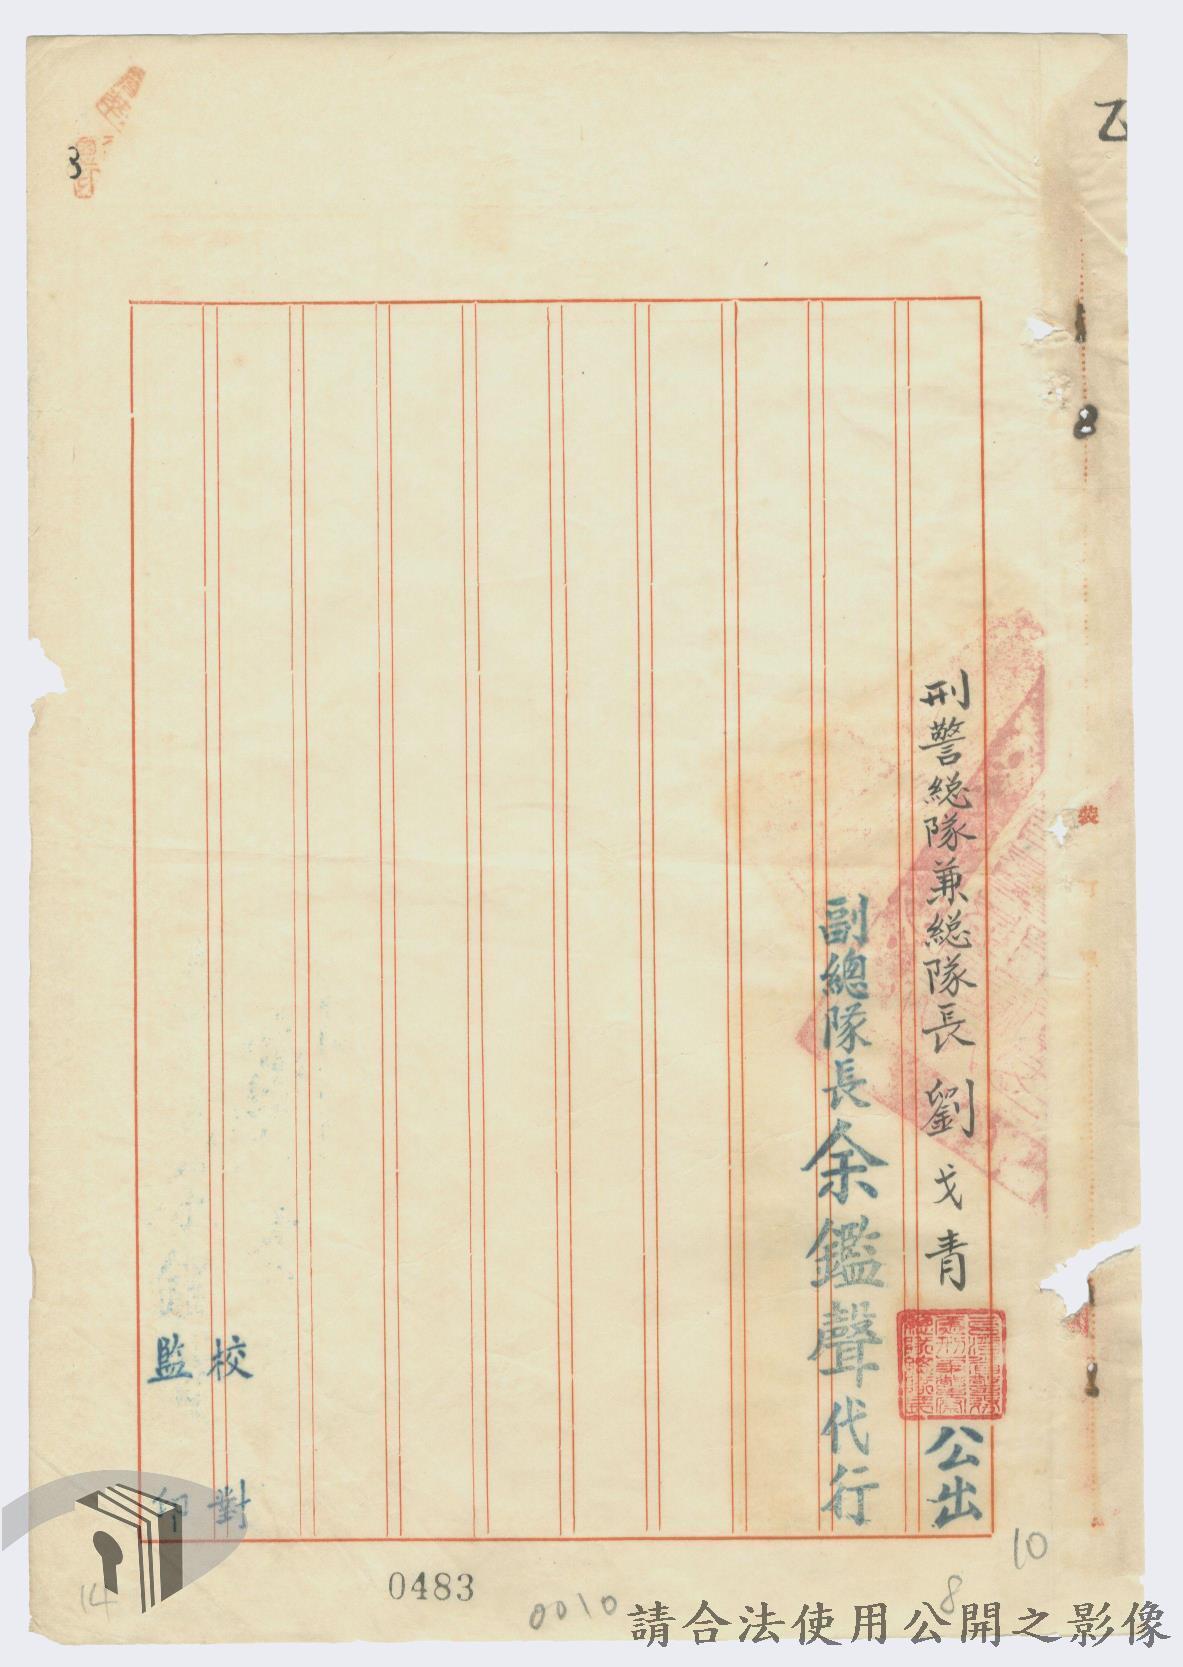 乙
刑警総隊兼総隊長劉戈青公出
副總隊長余鑑聲代行
校對
監印
裝
8
10
8
0010
0483
14
請合法使用公開之影像